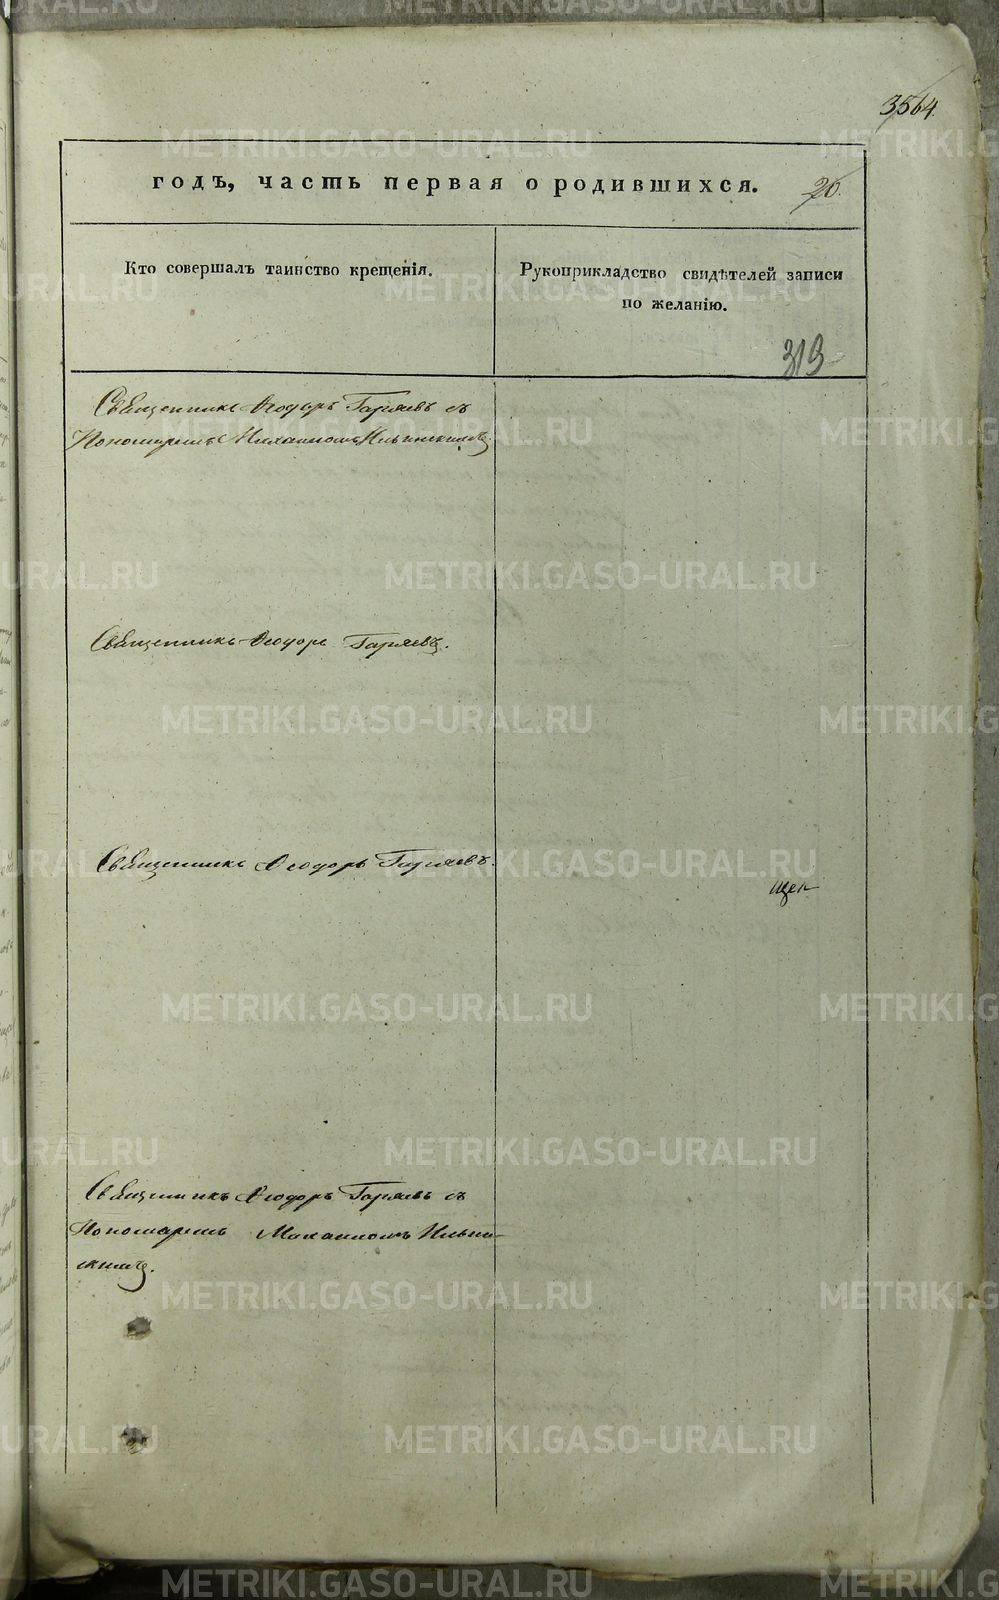 3564.
годъ, часть первая о родившихся.
20.
Кто совершалъ таинство крещенія.
Рукоприкладство свидѣтелей записи
по желанію.
319
Священникъ Ѳеодоръ Гаряевъ съ
Пономаремъ Михаиломъ Ильинскимъ.
Священникъ Ѳеодоръ Гаряевъ.
Священникъ Ѳеодоръ Гаряевъ.
Священникъ Ѳеодоръ Гаряевъ съ
Пономаремъ Михаиломъ Ильин-
скимъ.
METRIKI.GASO-URAL.RU